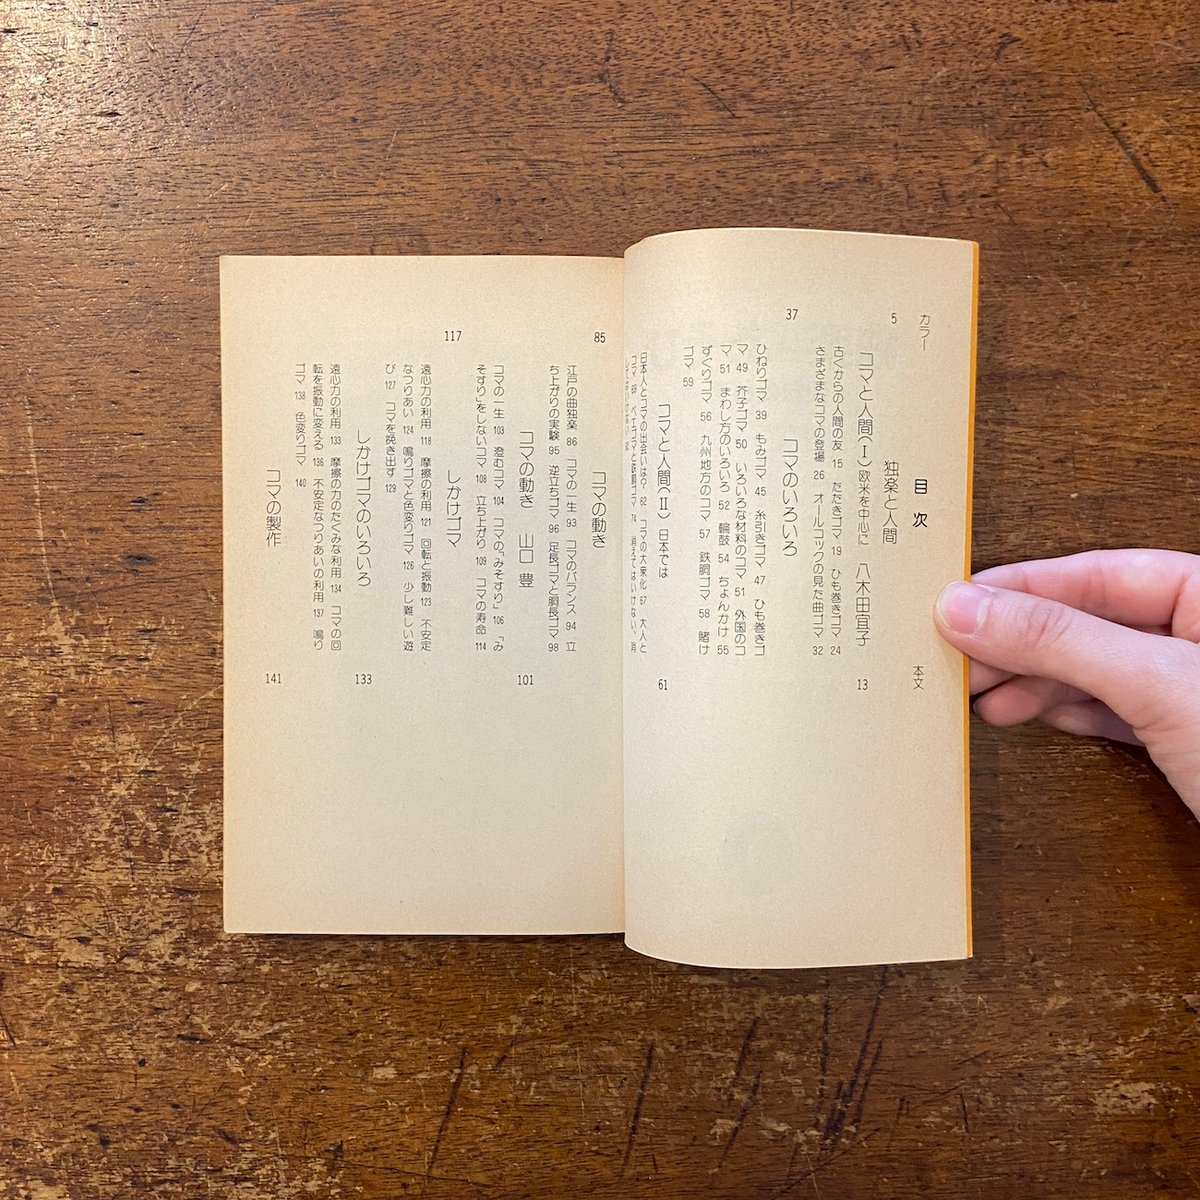 目次
カラー 本文
5 独楽と人間
コマと人間(Ⅰ)欧米を中心に 八木田宜子 13
古くからの人間の友 15 たたきゴマ 19 ひも巻きゴマ 24
さまざまなコマの登場 26 オールコックの見た曲ゴマ 32
37 コマのいろいろ
ひねりゴマ 39 もみゴマ 45 糸引きゴマ 47 ひも巻きゴ
マ 49 芥子ゴマ 50 いろいろな材料のコマ 51 外国のコ
マ 51 まわし方のいろいろ 52 輪鼓 54 ちょんかけ 55
ずぐりゴマ 56 九州地方のコマ 57 鉄胴ゴマ 58 賭け
ゴマ 59
コマと人間(Ⅱ) 日本では 61
日本人とコマの出会いは? 62 コマの大衆化 67 大人と
コマ 69 ベエゴマと鉄胴ゴマ 74 消えてはいけない、消
85 コマの動き
江戸の曲独楽 86 コマの一生 93 コマのバランス 94 立
ち上がりの実験 95 逆立ちゴマ 96 足長ゴマと胴長ゴマ 98
コマの動き 山口 豊 101
コマの一生 103 澄むコマ 104 コマの「みそすり」 106 「み
そすり」をしないコマ 108 立ち上がり 109 コマの寿命 114
117 しかけゴマ
遠心力の利用 118 摩擦の利用 121 回転と振動 123 不安定
なつりあい 124 鳴りゴマと色変りゴマ 126 少し難しい遊
び 127 コマを挽き出す 129
しかけゴマのいろいろ 133
遠心力の利用 133 摩擦の力のたくみな利用 134 コマの回
転を振動に変える 136 不安定なつりあいの利用 137 鳴り
ゴマ 138 色変りゴマ 140
コマの製作 141